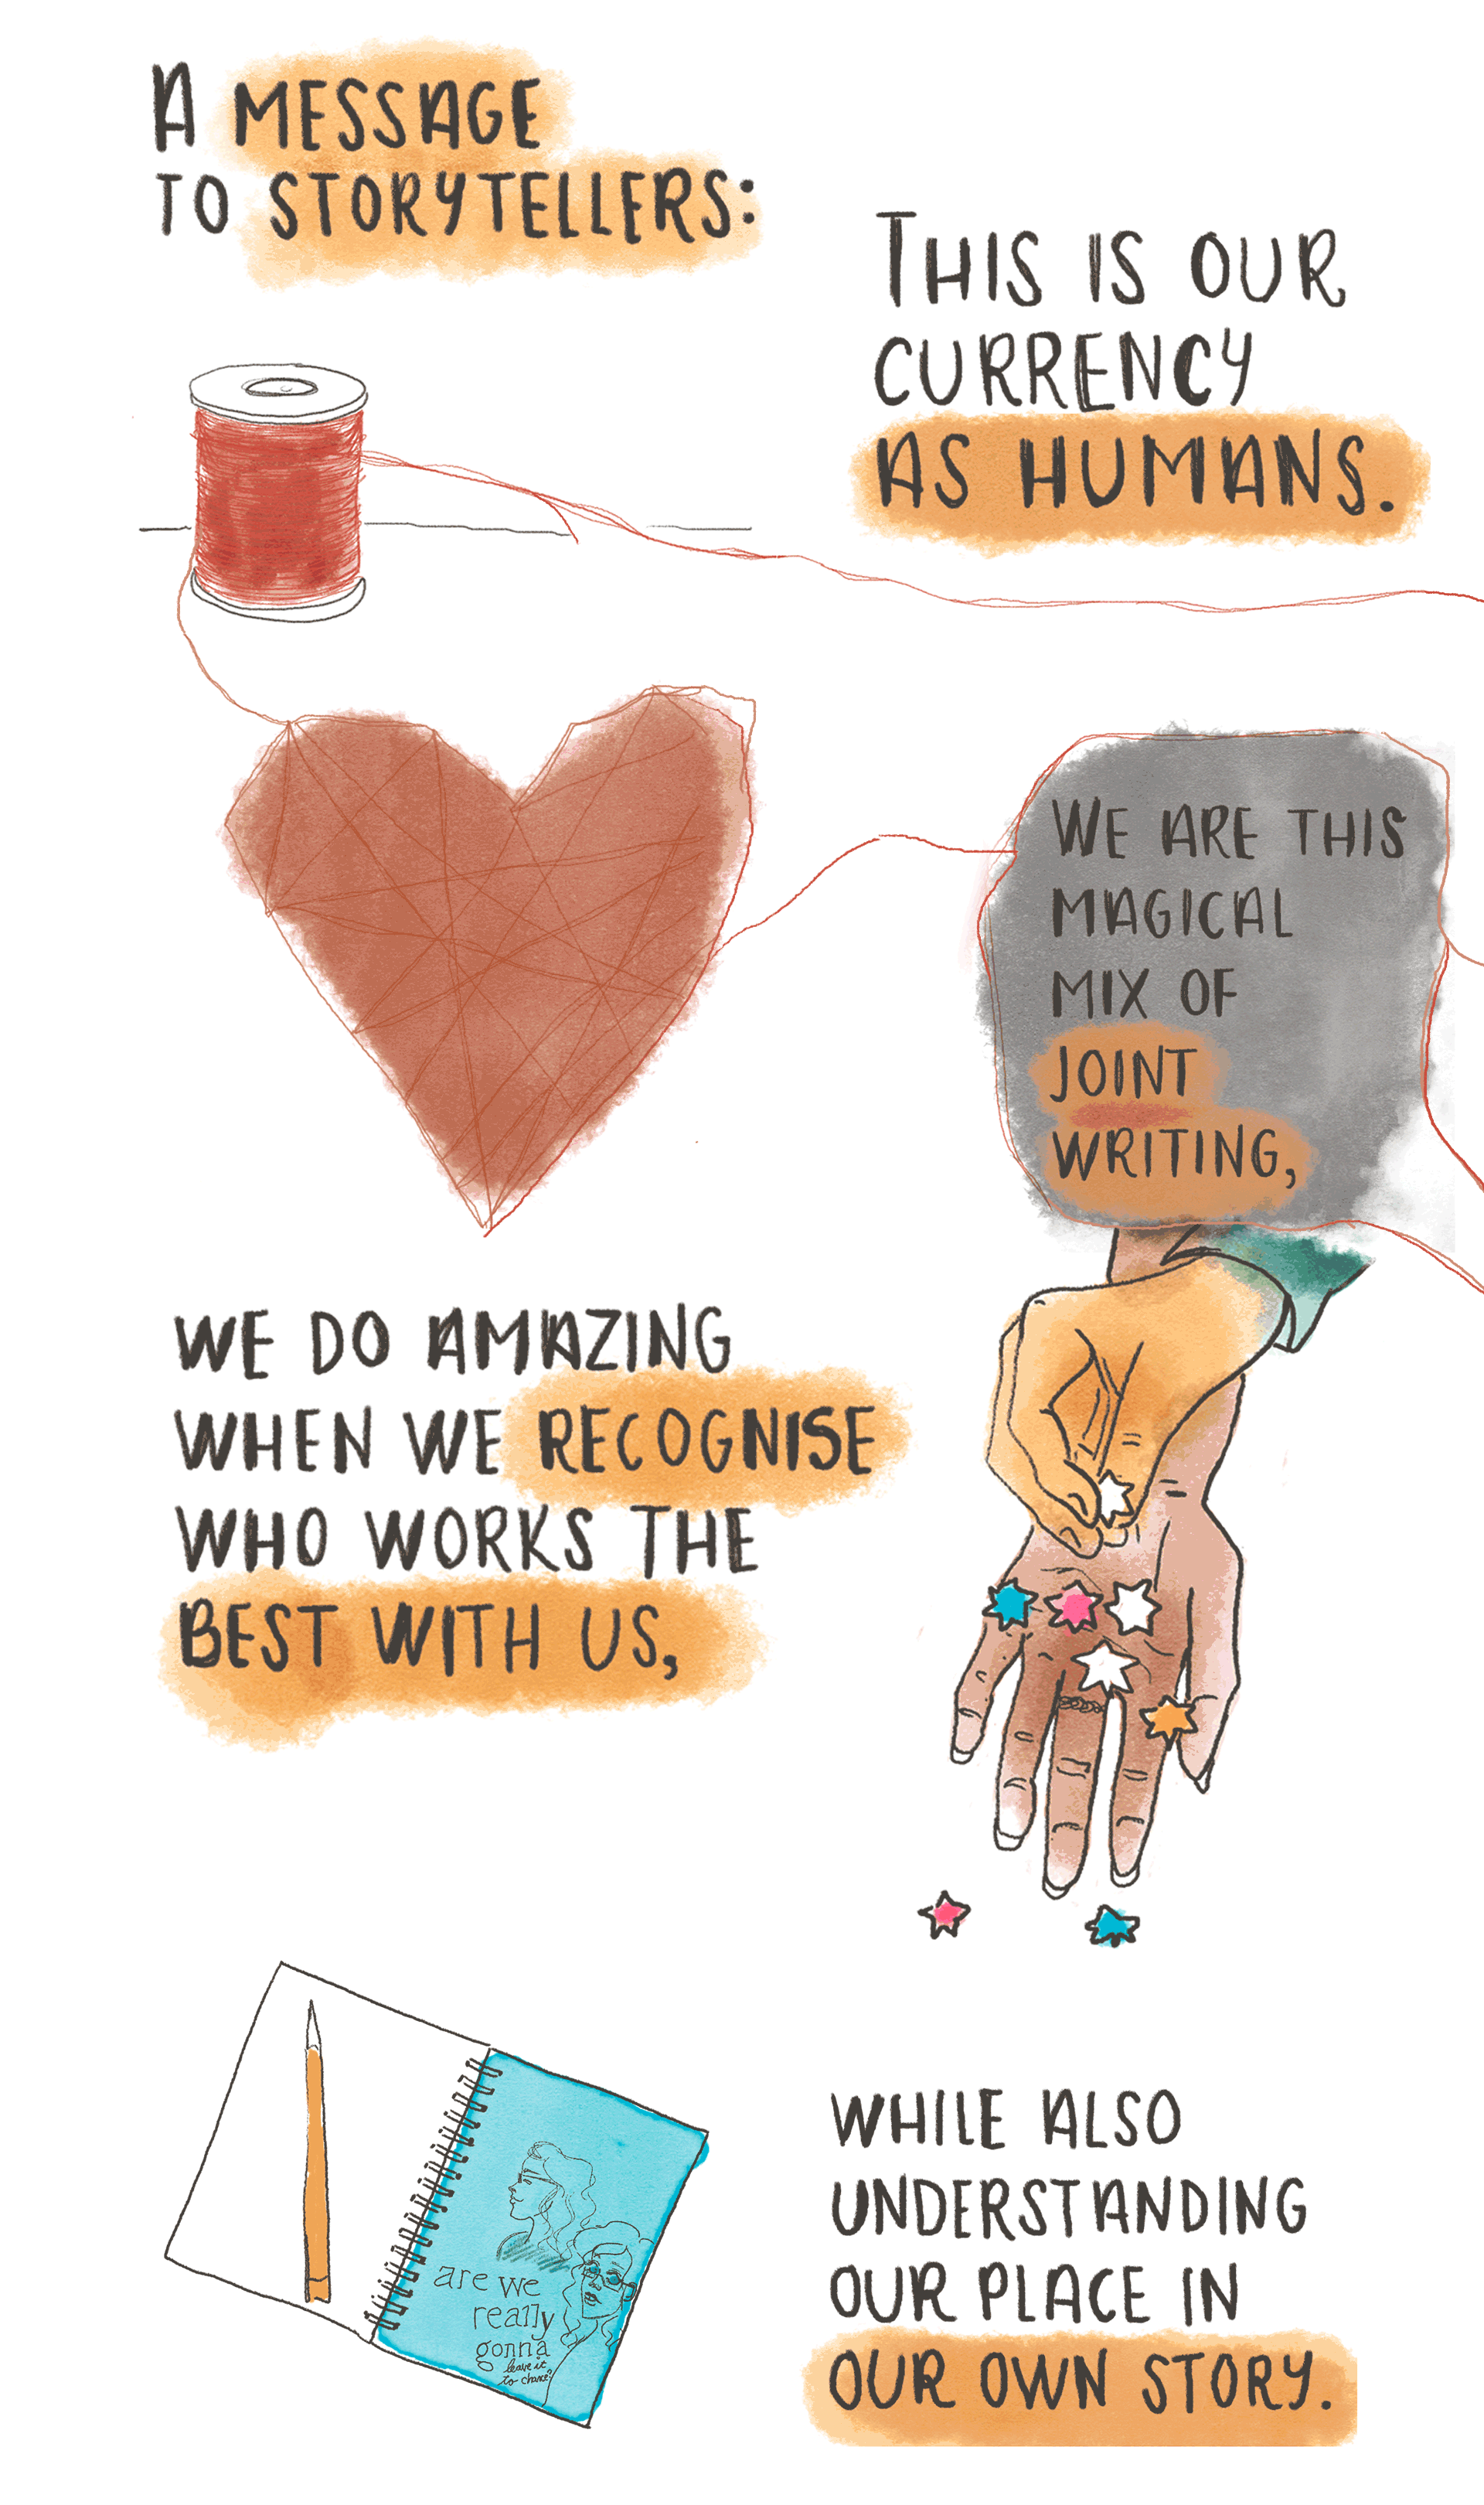 A MESSAGE
TO STORYTELLERS:
THIS IS OUR
CURRENCY
AS HUMANS.
WE ARE THIS
MAGICAL
MIX OF
JOINT
WRITING,
WE DO AMAZING
WHEN WE RECOGNISE
WHO WORKS THE
BEST WITH US,
are we
really
gonna
leave it
to chance?
WHILE ALSO
UNDERSTANDING
OUR PLACE IN
OUR OWN STORY.